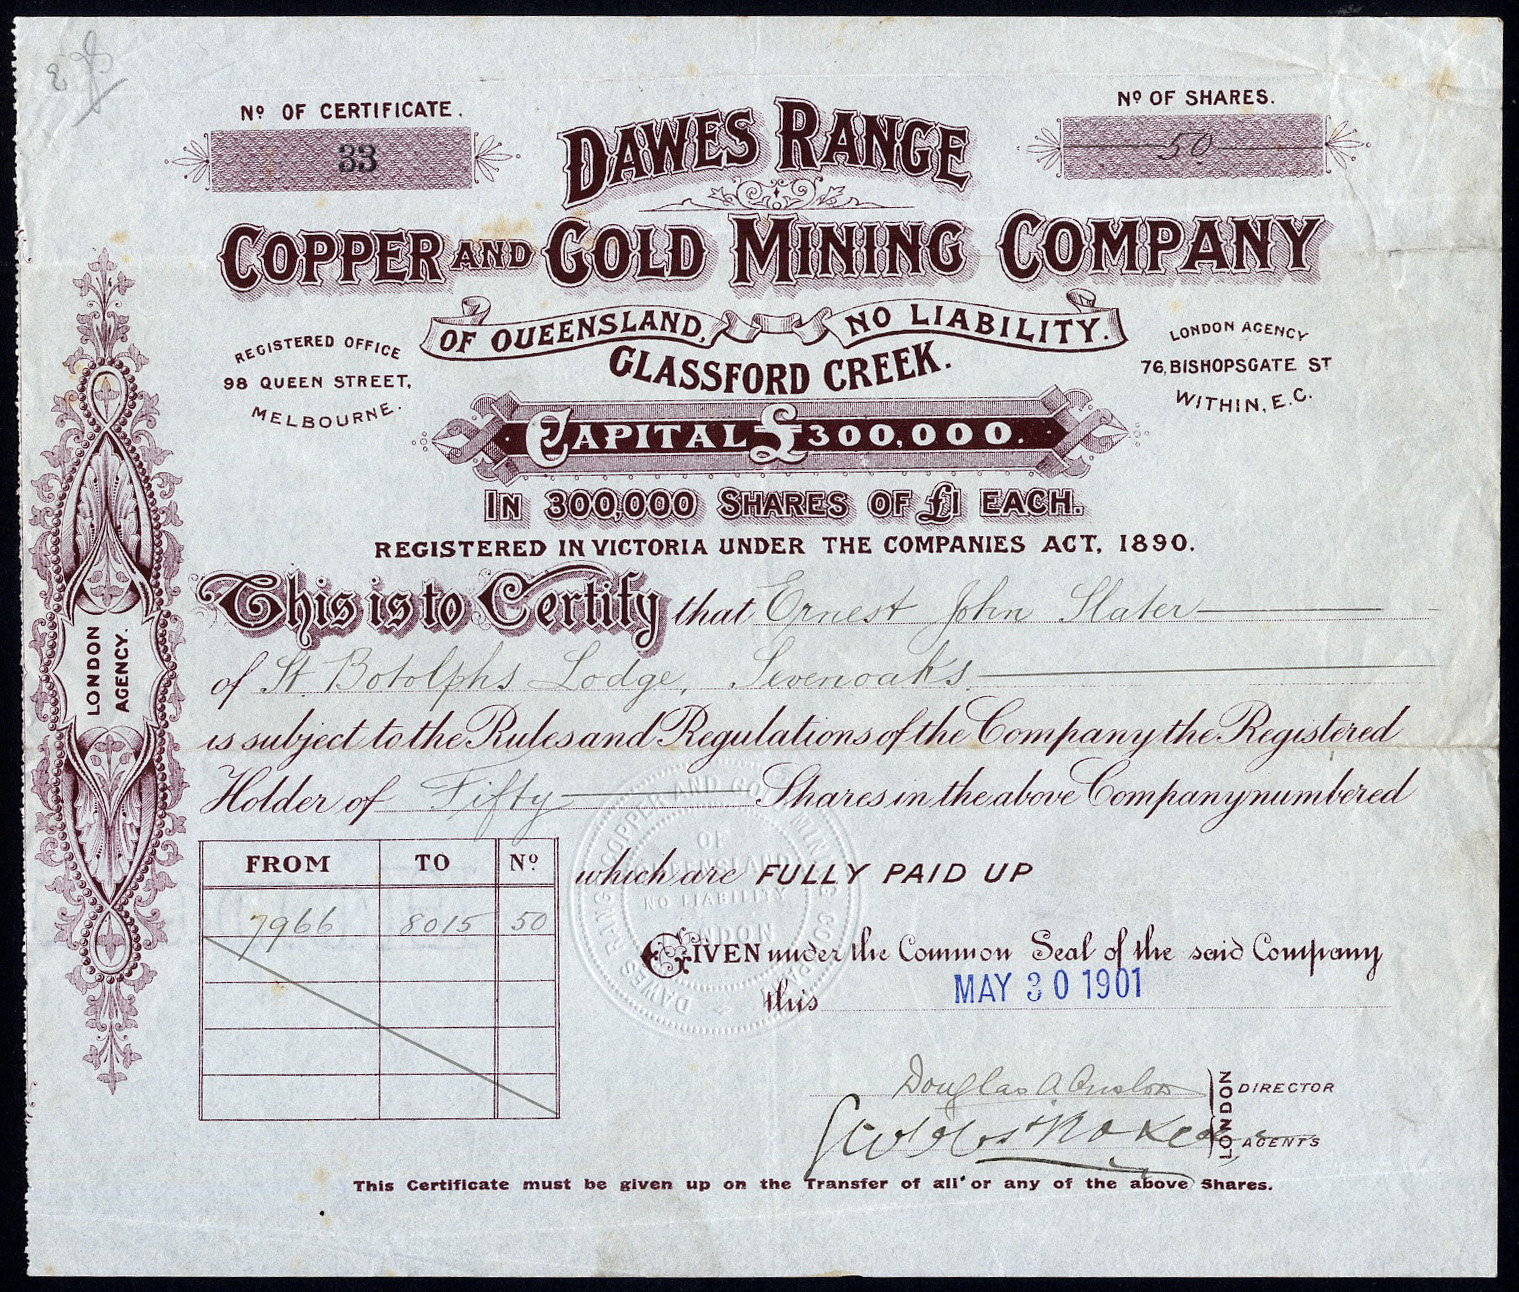 Nº OF CERTIFICATE.
33
Nº OF SHARES.
50
DAWES RANGE
COPPER AND GOLD MINING COMPANY
OF QUEENSLAND, NO LIABILITY.
GLASSFORD CREEK.
REGISTERED OFFICE
98 QUEEN STREET,
MELBOURNE.
LONDON AGENCY
76, BISHOPSGATE ST
WITHIN, E.C.
CAPITAL £300,000.
IN 300,000 SHARES OF £1 EACH.
REGISTERED IN VICTORIA UNDER THE COMPANIES ACT, 1890.
This is to Certify that Ernest John Slater
of St. Botolphs Lodge, Sevenoaks
is subject to the Rules and Regulations of the Company the Registered
Holder of Fifty Shares in the above Company numbered
FROM TO Nº
7966 8015 50
which are FULLY PAID UP
GIVEN under the Common Seal of the said Company
this MAY 30 1901
DAWES RANGE COPPER AND GOLD MINING COMPANY
OF
QUEENSLAND
NO LIABILITY
LONDON
LONDON
AGENCY.
Douglas A
DIRECTOR
LONDON
AGENTS
This Certificate must be given up on the Transfer of all or any of the above Shares.